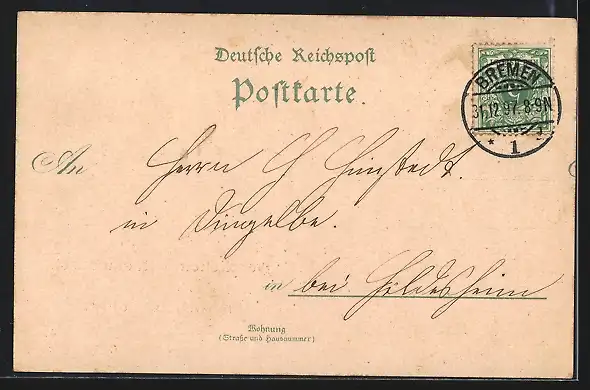 Deutsche Reichspost
Postkarte.
BREMEN
31.12.97. 8-9N
* 1
An Herrn H Himstedt.
in Dingelbe.
in bei Hildesheim
Wohnung
(Straße und Hausnummer)